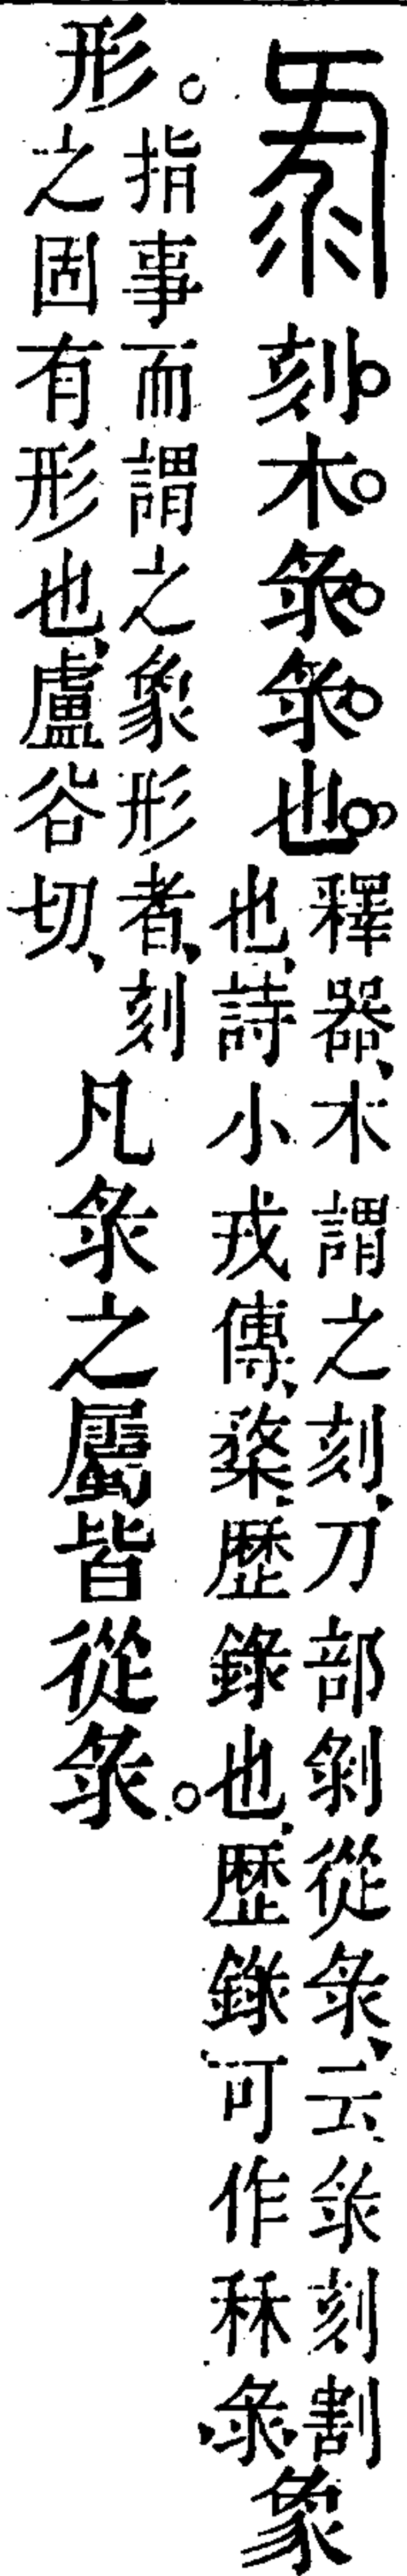 彔刻木彔彔也。
釋器、木謂之刻、刀部剝從彔、云彔刻割
也、詩小戎傳、楘、歷錄也、歷錄可作秝彔、
象
形。
指事而謂之象形者、刻
之固有形也、盧谷切、
凡彔之屬皆從彔。